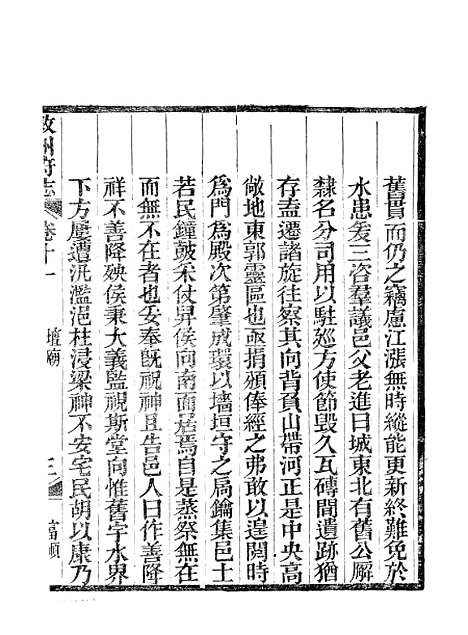 舊冒而仍之竊慮江漲無時縱能更新終難免於
水患爰三咨羣議邑父老進曰城東北有舊公廨
隸名分司用以駐巡方使節毀久瓦磚間遺跡猶
存盍遷諸旋往察其向背負山帶河正是中央高
敞地東郭靈區也亟捐頒俸經之弗敢以遑閱時
爲門爲殿次第肇成環以墻垣守之扃鑰集邑士
若民鐘鼓釆仗昇侯向南面居焉自是蒸祭無在
而無不在者也妥奉旣祝神且告邑人曰作善降
祥不善降殃侯秉大義監視斯堂向惟舊宇水界
下方屢遭汎濫浥柱浸梁神不安宅民胡以康乃
敘州府志
卷十一
壇廟
三
富順